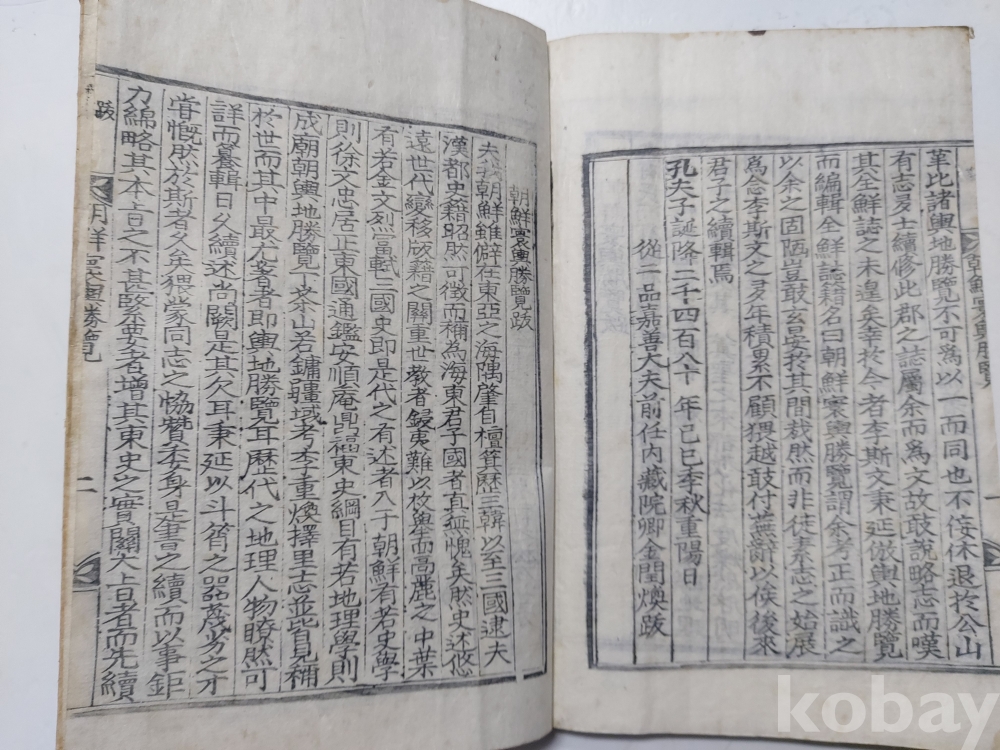 葦比諸輿地勝覽不可爲以一而同也不佞休退於公山
有志多士續修此郡之誌屬余而爲文故敢說略志而嘆
其全鮮誌之未遑矣幸於今者李斯文秉延倣輿地勝覽
而編輯全鮮誌籍名曰朝鮮寰輿勝覽謂余考正而識之
以余之固陋豈敢玄晏於其間哉然而非徒素志之始展
爲念李斯文之多年積累不顧猥越敢付蕪辭以俟後來
君子之續輯焉
孔夫子誕降二千四百八十年己巳季秋重陽日
從二品嘉善大夫前任內藏院卿金閏煥跋
朝鮮寰輿勝覽
一
朝鮮寰輿勝覽跋
夫我朝鮮雖僻在東亞之海隅肇自檀箕歷三韓以至三國逮夫
漢都史籍昭然可徵而稱爲海東君子國者直無愧矣然史述悠
遠世代變移版籍之關重世教者最夷難以枚擧而高麗之中葉
有若金文烈富軾三國史即是代之有述者入于朝鮮有若史學
則徐文忠居正東國通鑑安順庵鼎福東史綱目有若地理學則
成廟朝輿地勝覽丁茶山若鏞疆域考李重煥擇里志並皆自見補
於世而其中最尤著者即輿地勝覽耳歷代之地理人物瞭然可
詳而纂輯日久續述尚闕是其欠耳秉延以斗筲之器蔑劣之才
嘗慨然於斯者久矣猥蒙同志之恊贊委身是書之續而以事鉅
力綿略其本旨之不甚緊要者增其東史之實關大旨者而先續
跋
朝鮮寰輿勝覽
二
kobay